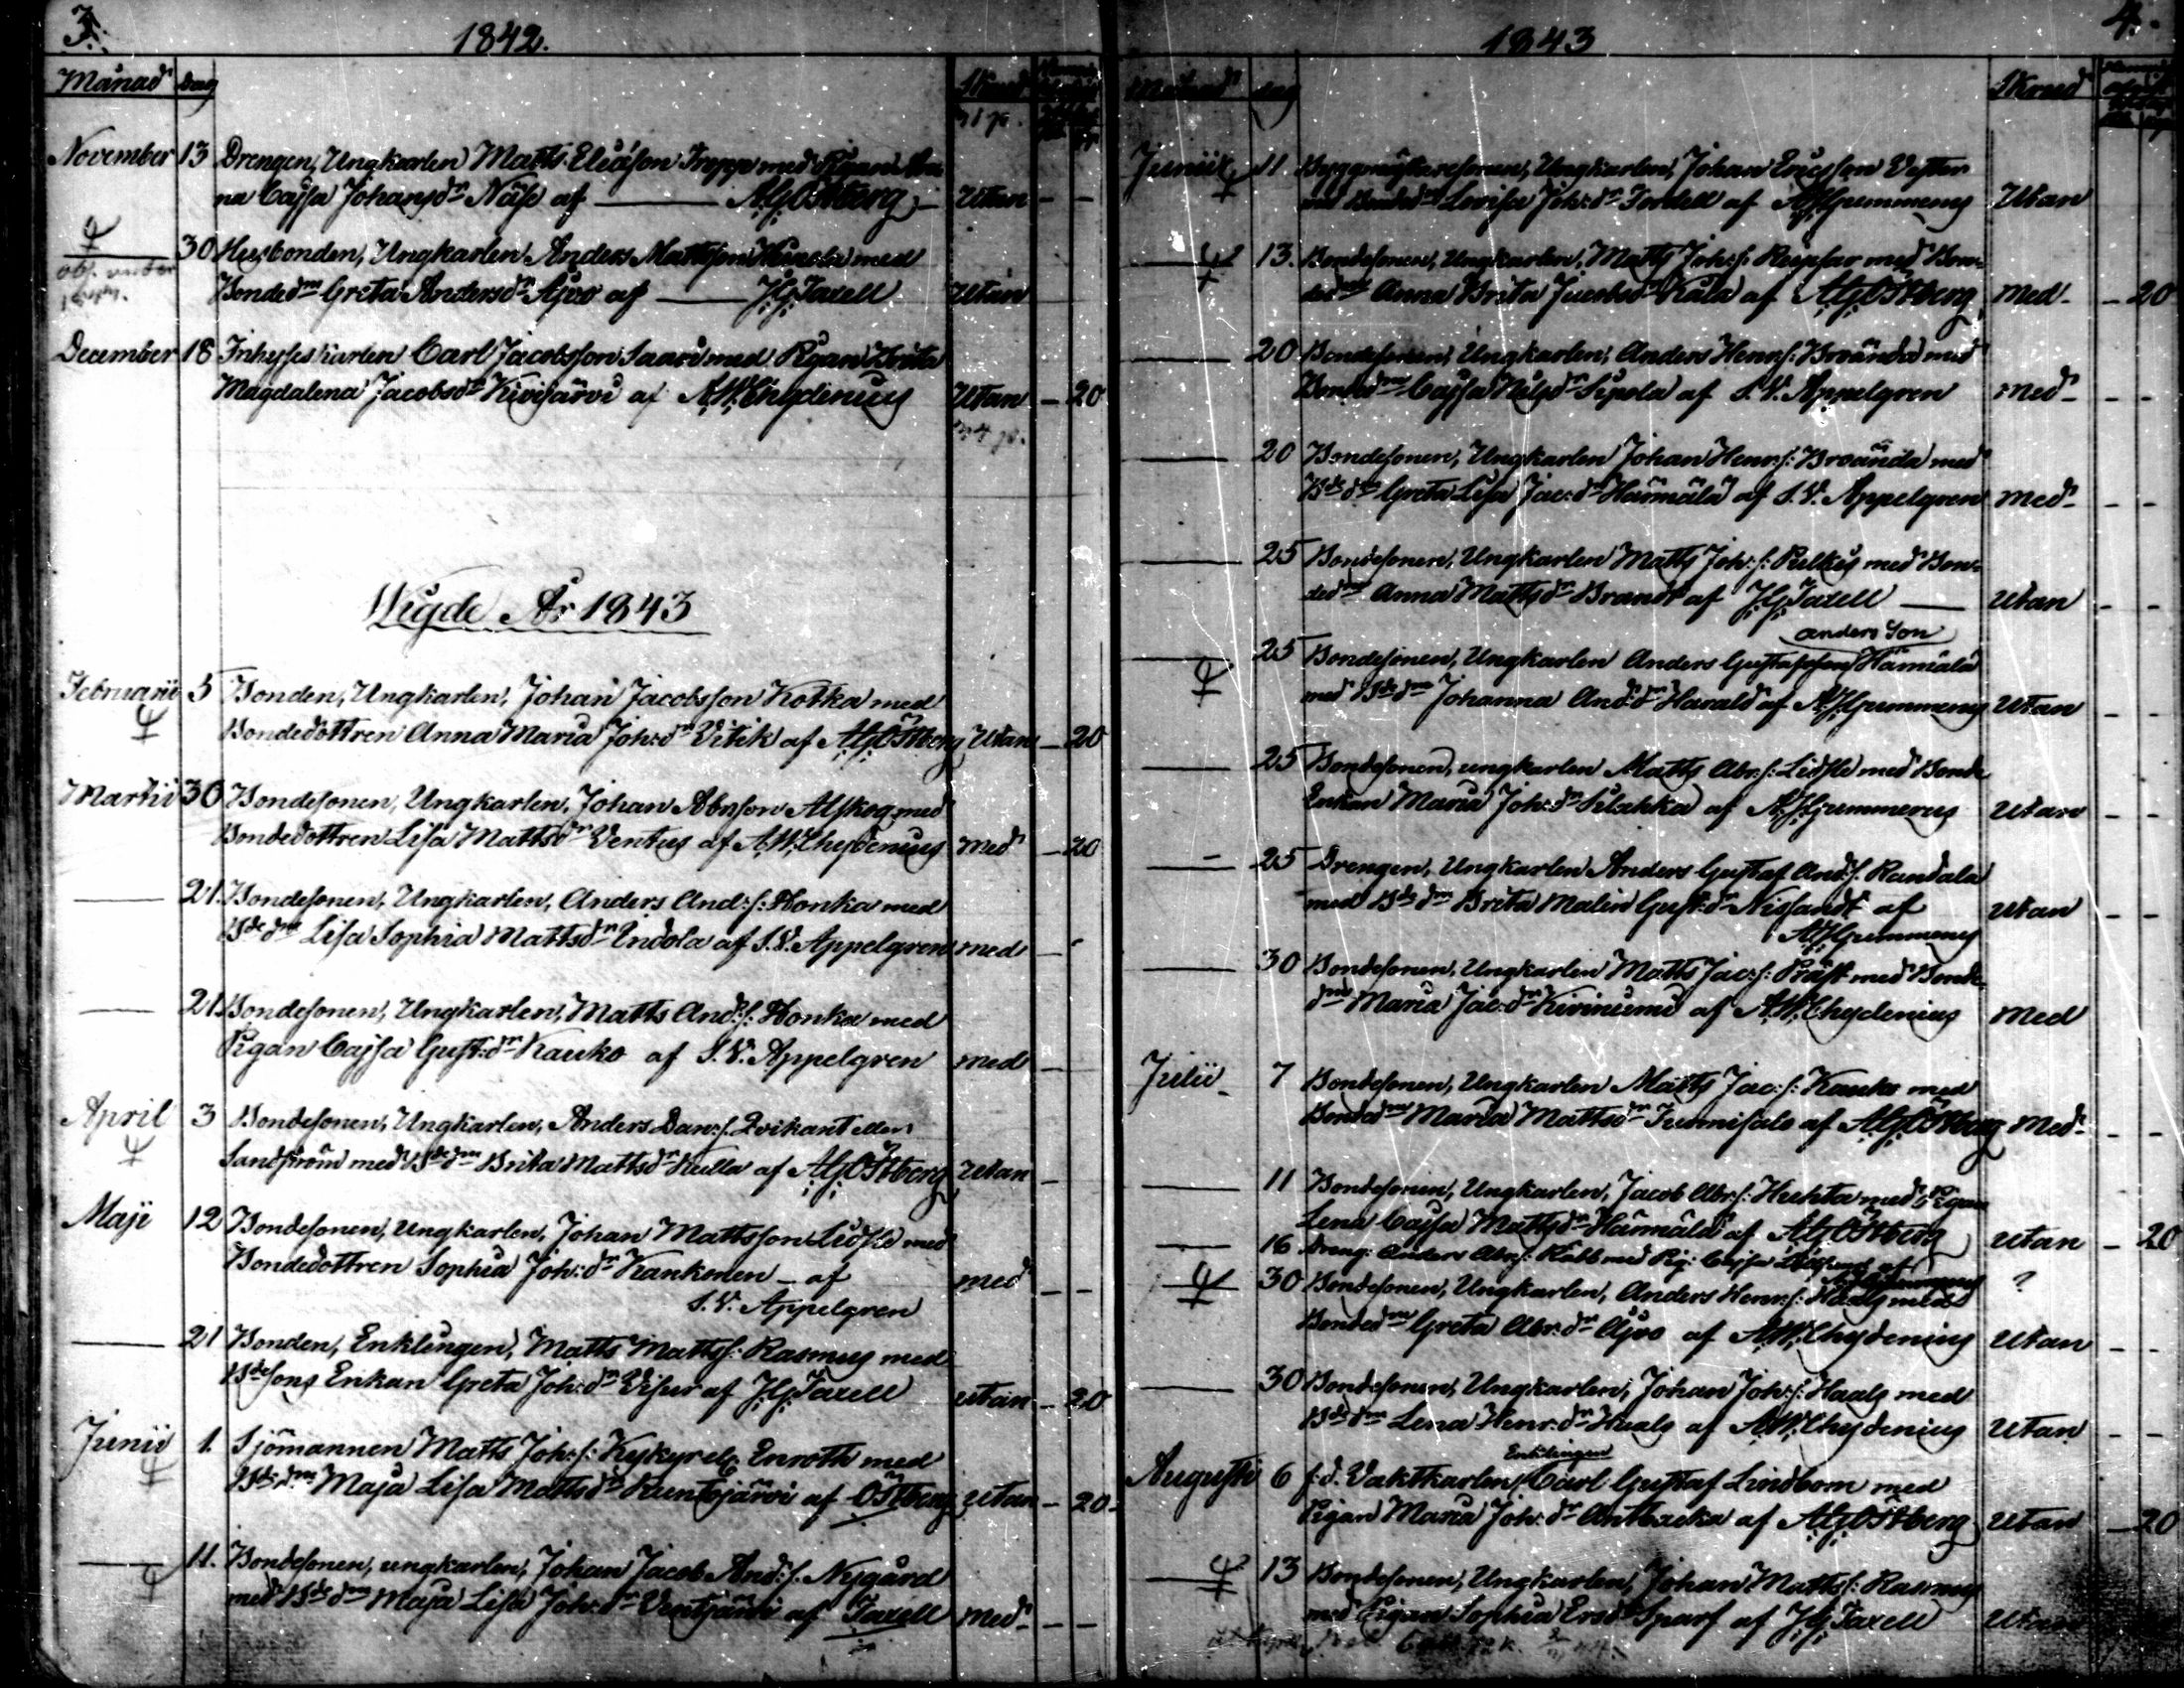 3.
1842.
Månad dag
November 13 Drengen, Ungkarlen Matts Eliæson Trepp med Pigan An-
na Cajsa Johansdr Näse af — A.G. Östberg Utan - -
30 Husbonden, Ungkarlen Anders Mattsson med
Bondedn Greta Andersdr Ajvo af — J.G. Taxell Utan
December 18 Inhyseskarlen Carl Jacobsson Saari med Pigan Brita
Magdalena Jacobsdr Kivijärvi af A.W. Chydenius Utan - 20
Wigde År 1843
Februarii 5 Bonden, Ungkarlen, Johan Jacobsson Kotka med
Bondedottren Anna Maria Joh:dr Vitik af A.G. Östberg Utan - 20
Martii 30 Bondesonen, Ungkarlen, Johan Abrsson Alskog med
Bondedottren Lisa Mattsdr Ventus af A.W. Chydenius Med - 20
— 21. Bondesonen, Ungkarlen, Anders And:s: Honka med
Bde dn Lisa Sophia Mattsdr Indola af S.V. Appelgren med - -
— 21 Bondesonen, Ungkarlen, Matts And:s: Honka med
Pigan Cajsa Gust:dr Kauko af S.V. Appelgren med -
April 3 Bondesonen, Ungkarlen, Anders Dan:s: Qvikant eller
Sandström med Bde dn Brita Mattsdr Kulla af A.G. Östberg Utan -
Maji 12 Bondesonen, Ungkarlen, Johan Mattsson Lidsle med
Bondedottren Sophia Joh:dr Kankonen - af
S.V. Appelgren med - -
— 21 Bonden, Enklingen, Matts Matts: Rasmus med
Bdesons Enkan Greta Joh:dr Visur af J.G. Taxell utan - 20
Junii 1. Sjömannen Matts Joh:s: Kykyreli. Enroth med
Bde dn Maja Lisa Mattsdr Kuntsjärvi af Östberg Utan - 20-
— 11. Bondesonen, ungkarlen, Johan Jacob And:s: Nygård
med Bde dn Maja Lisa Joh:dr Ventjärvi af Taxell Med - -
4.
1843
Månad dag
Junii 11 Byggmästaresonen, Ungkarlen, Johan Ericsson Vester
med Bondedn Lovisa Joh:dr Fordell af A.J. Gummerus Utan
— 13. Bondesonen, Ungkarlen, Matts Joh:s: Ruspar med Bon-
dedn Anna Brita Jacobsdr Kåla af A.G. Östberg Med - - 20
— 20 Bondesonen, Ungkarlen, Anders Henr:s: Broända med
Bondedn Cajsa Nilsdr Sipola af S.V. Appelgren Med - - -
— 20 Bondesonen, Ungkarlen Johan Henr:s: Broända med
Bde dn Greta Lisa Jac:dr Härmälä af S.V. Appelgren Med - - -
— 25 Bondesonen, Ungkarlen Matts Joh:s: Pulkis med Bon-
dedn Anna Mattsdr Brandt af J.G. Taxell — Utan - -
anders Son
— 25 Bondesonen, Ungkarlen Anders Gustafsson Härmälä
med Bde dn Johanna And:dr Harald af A.J. Gummerus Utan - -
— 25 Bondesonen, ungkarlen Matts Abr:s: Lidsle med Bonde
Enkan Maria Joh:dr Silahka af A.J. Gummerus Utan - -
— 25 Drengen, Ungkarlen Anders Gustaf And:s: Randala
med Bde dn Brita Malin Gust:dr Nissandt af
A.J. Gummerus Utan - -
— 30 Bondesonen, Ungkarlen Matts Jac:s: Präst med Bonde
dn Maria Jac:dr Kiviniemi af A.W. Chydenius Med
Julii 7 Bondesonen, Ungkarlen Matts Jac:s: Kauko med
Bondedn Maria Mattsdr Tunnisalo af A.G. Östberg Med - - -
— 11 Bondesonen, Ungkarlen, Jacob Abr:s: Huhta med Pigan
Lena Cajsa Mattsdr Härmälä af A.G. Östberg Utan - 20
— 16 Dreng: Anders Abr:s: Rabb med Pig: Cajsa af
A.J. Gummerus ?
30 Bondesonen, Ungkarlen, Anders Henr:s: Haals med
Bondedn Greta Abr:dr Ajvo af A.W. Chydenius Utan - -
— 30 Bondesonen, Ungkarlen, Johan Joh:s: Haals med
Bde dn Lena Henr:dr Haals af A.W. Chydenius Utan - -
Enklingen
Augusti 6 f:d. Vaktkarlen Carl Gustaf Lindbom med
Pigan Maria Joh:dr Antbacka af A.G. Östberg Utan - 20
— 13 Bondesonen, Ungkarlen, Johan Matts: Rasmus
med Pigan Sophia Ersdr Sparf af J.G. Taxell Utan